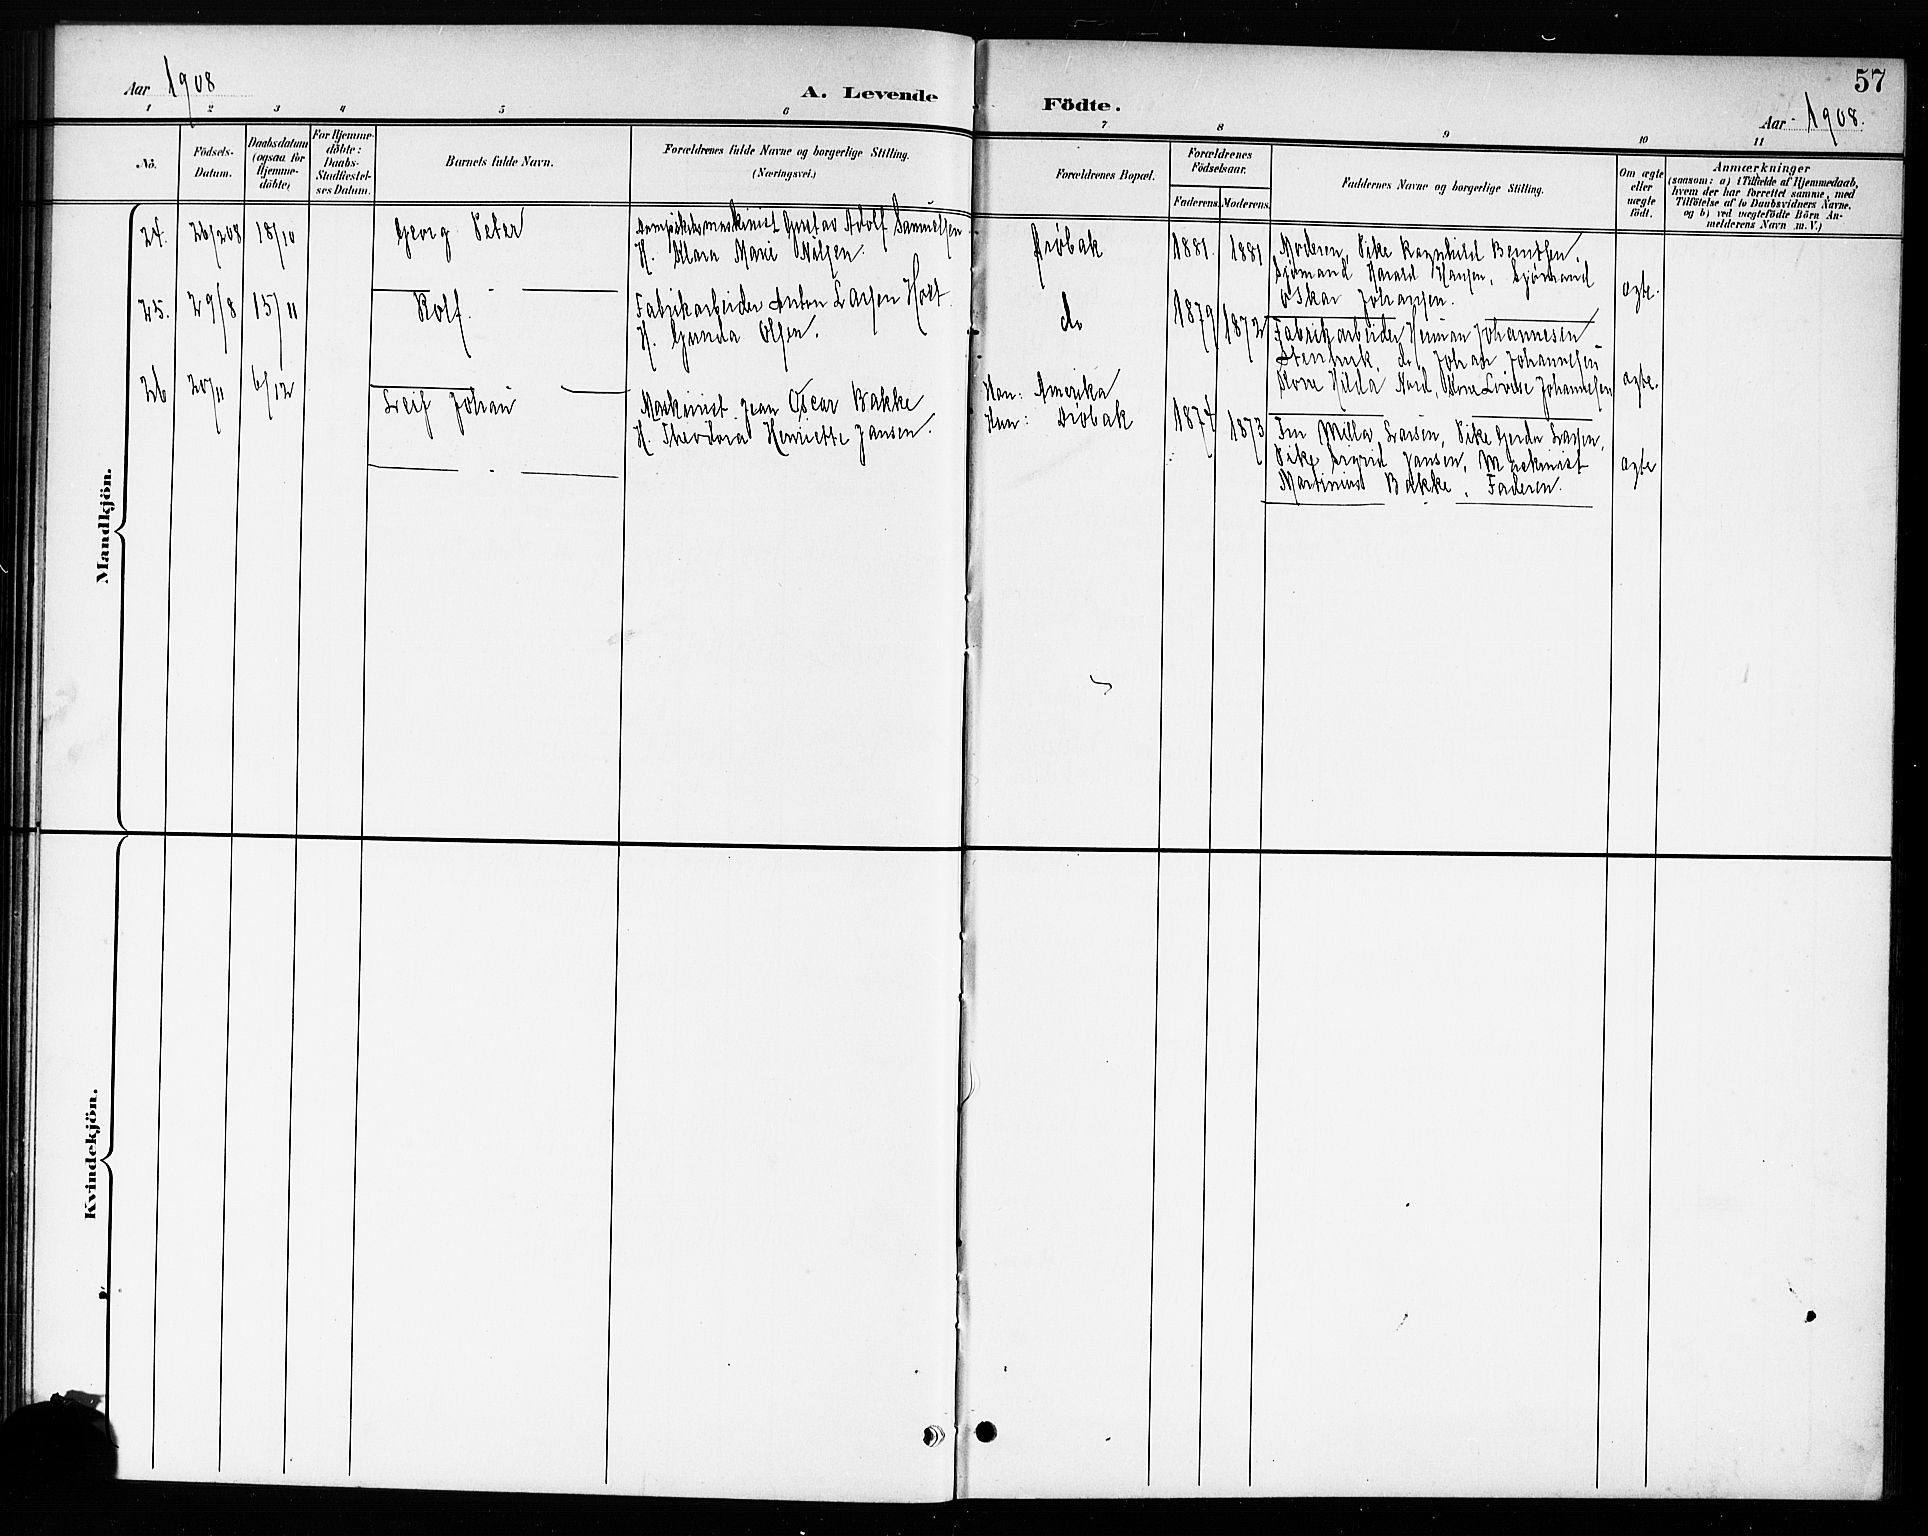 Aar 1908
A. Levende
Födte.
57
Aar 1908.
1 2 3 4 5 6 7 8 9 10 11
No.
Födsels-
Datum.
Daabsdatum
(ogsaa for
Hjemme-
döbte)
For Hjemme-
döbte:
Daabs-
Stadfæstel-
ses Datum.
Barnets fulde Navn.
Forældrenes fulde Navne og borgerlige Stilling.
(Næringsvei.)
Forældrenes Bopæl.
Forældrenes
Födselsaar.
Faderens. Moderens.
Faddernes Navne og borgerlige Stilling.
Om ægte
eller
uægte
födt.
Anmærkninger
(saasom: a) i Tilfælde af Hjemmedaab,
hvem der har forrettet samme, med
Tilföielse af to Daabsvidners Navne.
og b) ved uægtefödte Börn An-
melderens Navn m. V.)
Mandkjön.
24. 26/2 08 18/10 Georg Peter
Gustav Adolf Samuelsen
H. Klara Marie Nilsen.
Drøbak
1881. 1881
Moderen, Pike Ragnhild Berntsen,
Sjømand Harald Hansen, Sjømand
Oskar Johansen.
ægte.
25. 29/8 15/11 Rolf.
Fabrikarbeider Anton Larsen Holt
H. Gunda Olsen.
do
1879 1872
Fabrikarbeider Herman Johannesen
Stenbuk, do Johan Johannesen
Kone Hilda Nord, Kone Lovise Johannesen
ægte.
26 20/11 6/12 Leif Johan
Maskinist Jean Oscar Bakke
H. Theodora Henriette Jansen.
Han: Amerika
Hun: Drøbak
1874 1873
Fru Milla Larsen, Pike Gerda Larsen,
Pike Sigrid Jansen, Maskinist
Martinius Bakke, Faderen.
ægte
Kvindekjön.